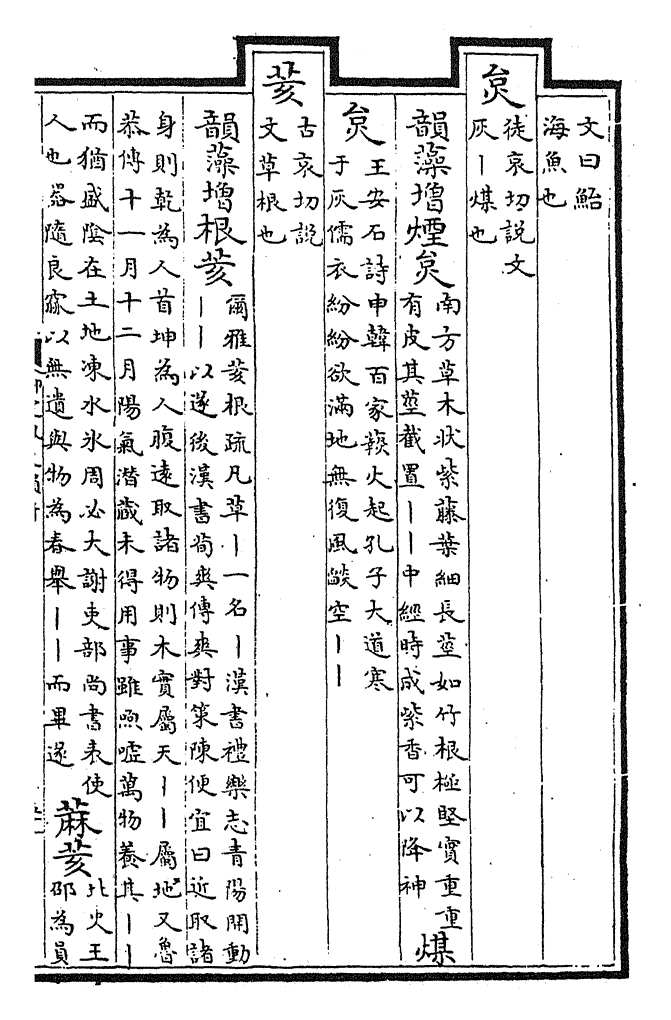 文曰鮐
海魚也
炱
徒哀切説文
灰丨煤也
韻藻增煙炱
南方草木狀紫藤葉細長莖如竹根極堅實重重
有皮其莖截置丨丨中經時成紫香可以降神
煤
炱
王安石詩申韓百家爇火起孔子大道寒
于灰儒衣紛紛欲滿地無復風燄空丨丨
荄
古哀切説
文草根也
韻藻增根荄
爾雅荄根疏凡草丨一名丨漢書禮樂志青陽開動
丨丨以遂後漢書荀爽傳爽對策陳便宜曰近取諸
身則乾為人首坤為人腹遠取諸物則木實屬天丨丨屬地又魯
恭傳十一月十二月陽氣潛藏未得用事雖煦嘘萬物養其丨丨
而猶盛陰在土地凍水氷周必大謝吏部尚書表使
人也器隨良窳以無遺與物為春舉丨丨而畢遂
蔴荄
北史王
邵為員